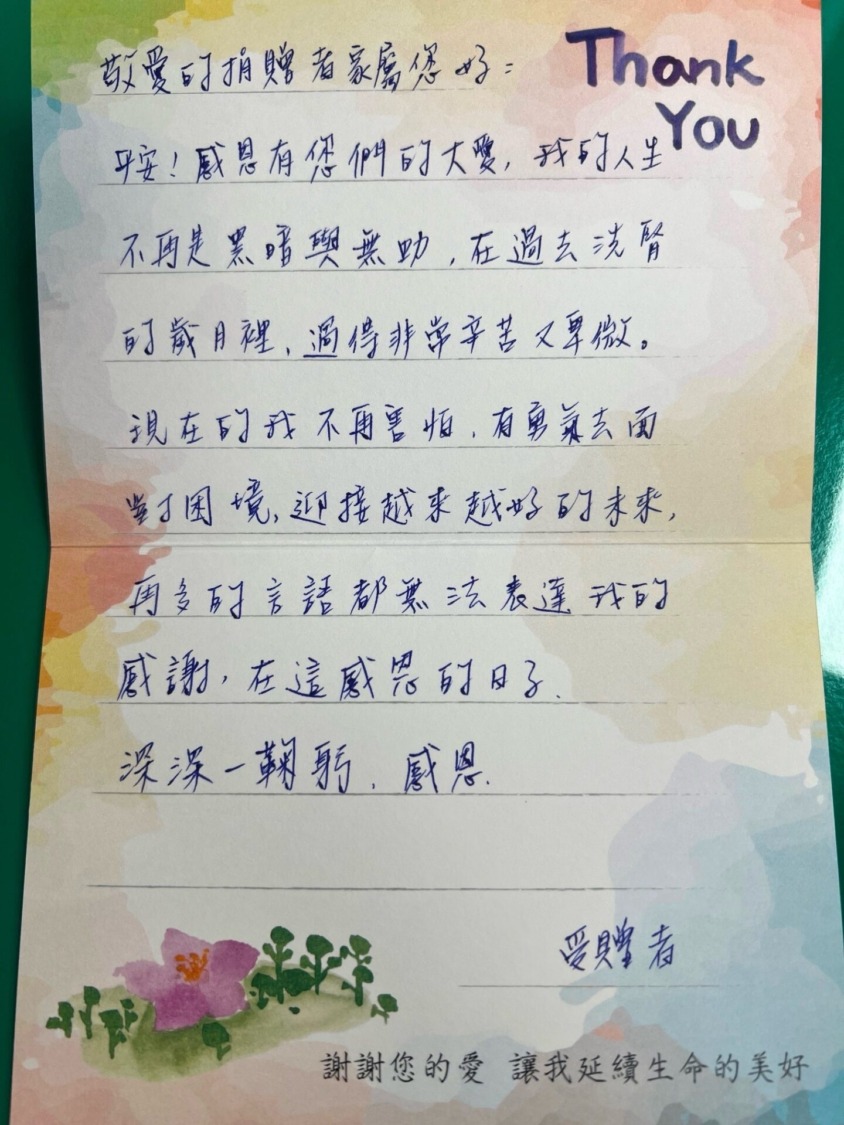 Thank
You
敬愛的捐贈者家屬您好：
平安！感恩有您們的大愛，我的人生
不再是黑暗與無助，在過去洗腎
的歲月裡，過得非常辛苦又卑微。
現在的我不再害怕，有勇氣去面
對困境，迎接越來越好的未來，
再多的言語都無法表達我的
感謝，在這感恩的日子.
深深一鞠躬，感恩.
受贈者
謝謝您的愛 讓我延續生命的美好